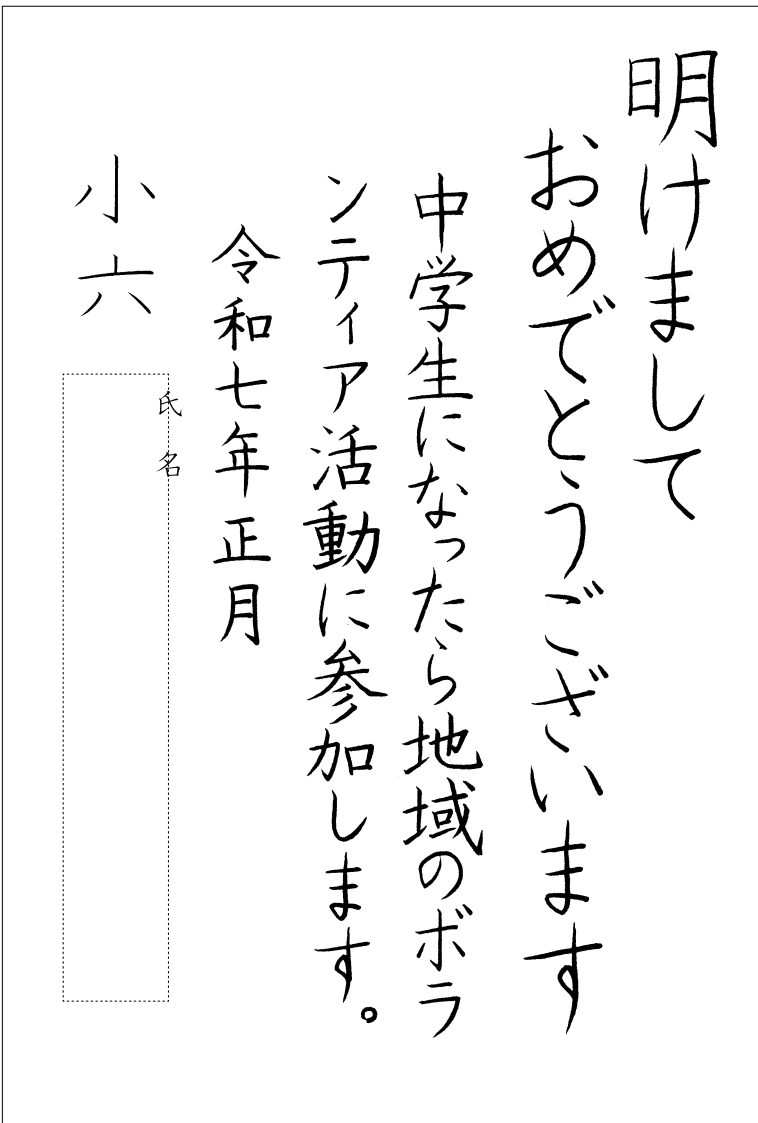 明けまして
おめでとうございます
中学生になったら地域のボラ
ンティア活動に参加します。
令和七年正月
小六
氏名